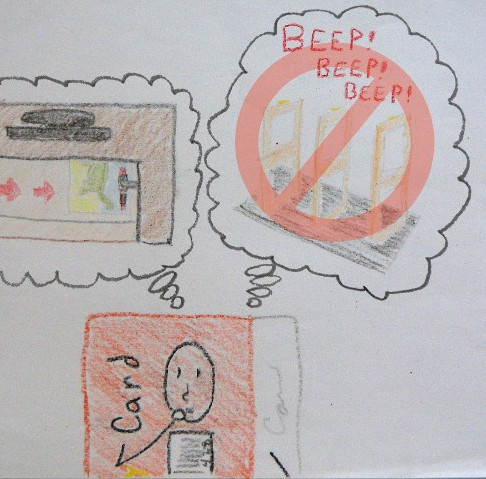 BEEP!
BEEP!
BEEP!
Card
Card